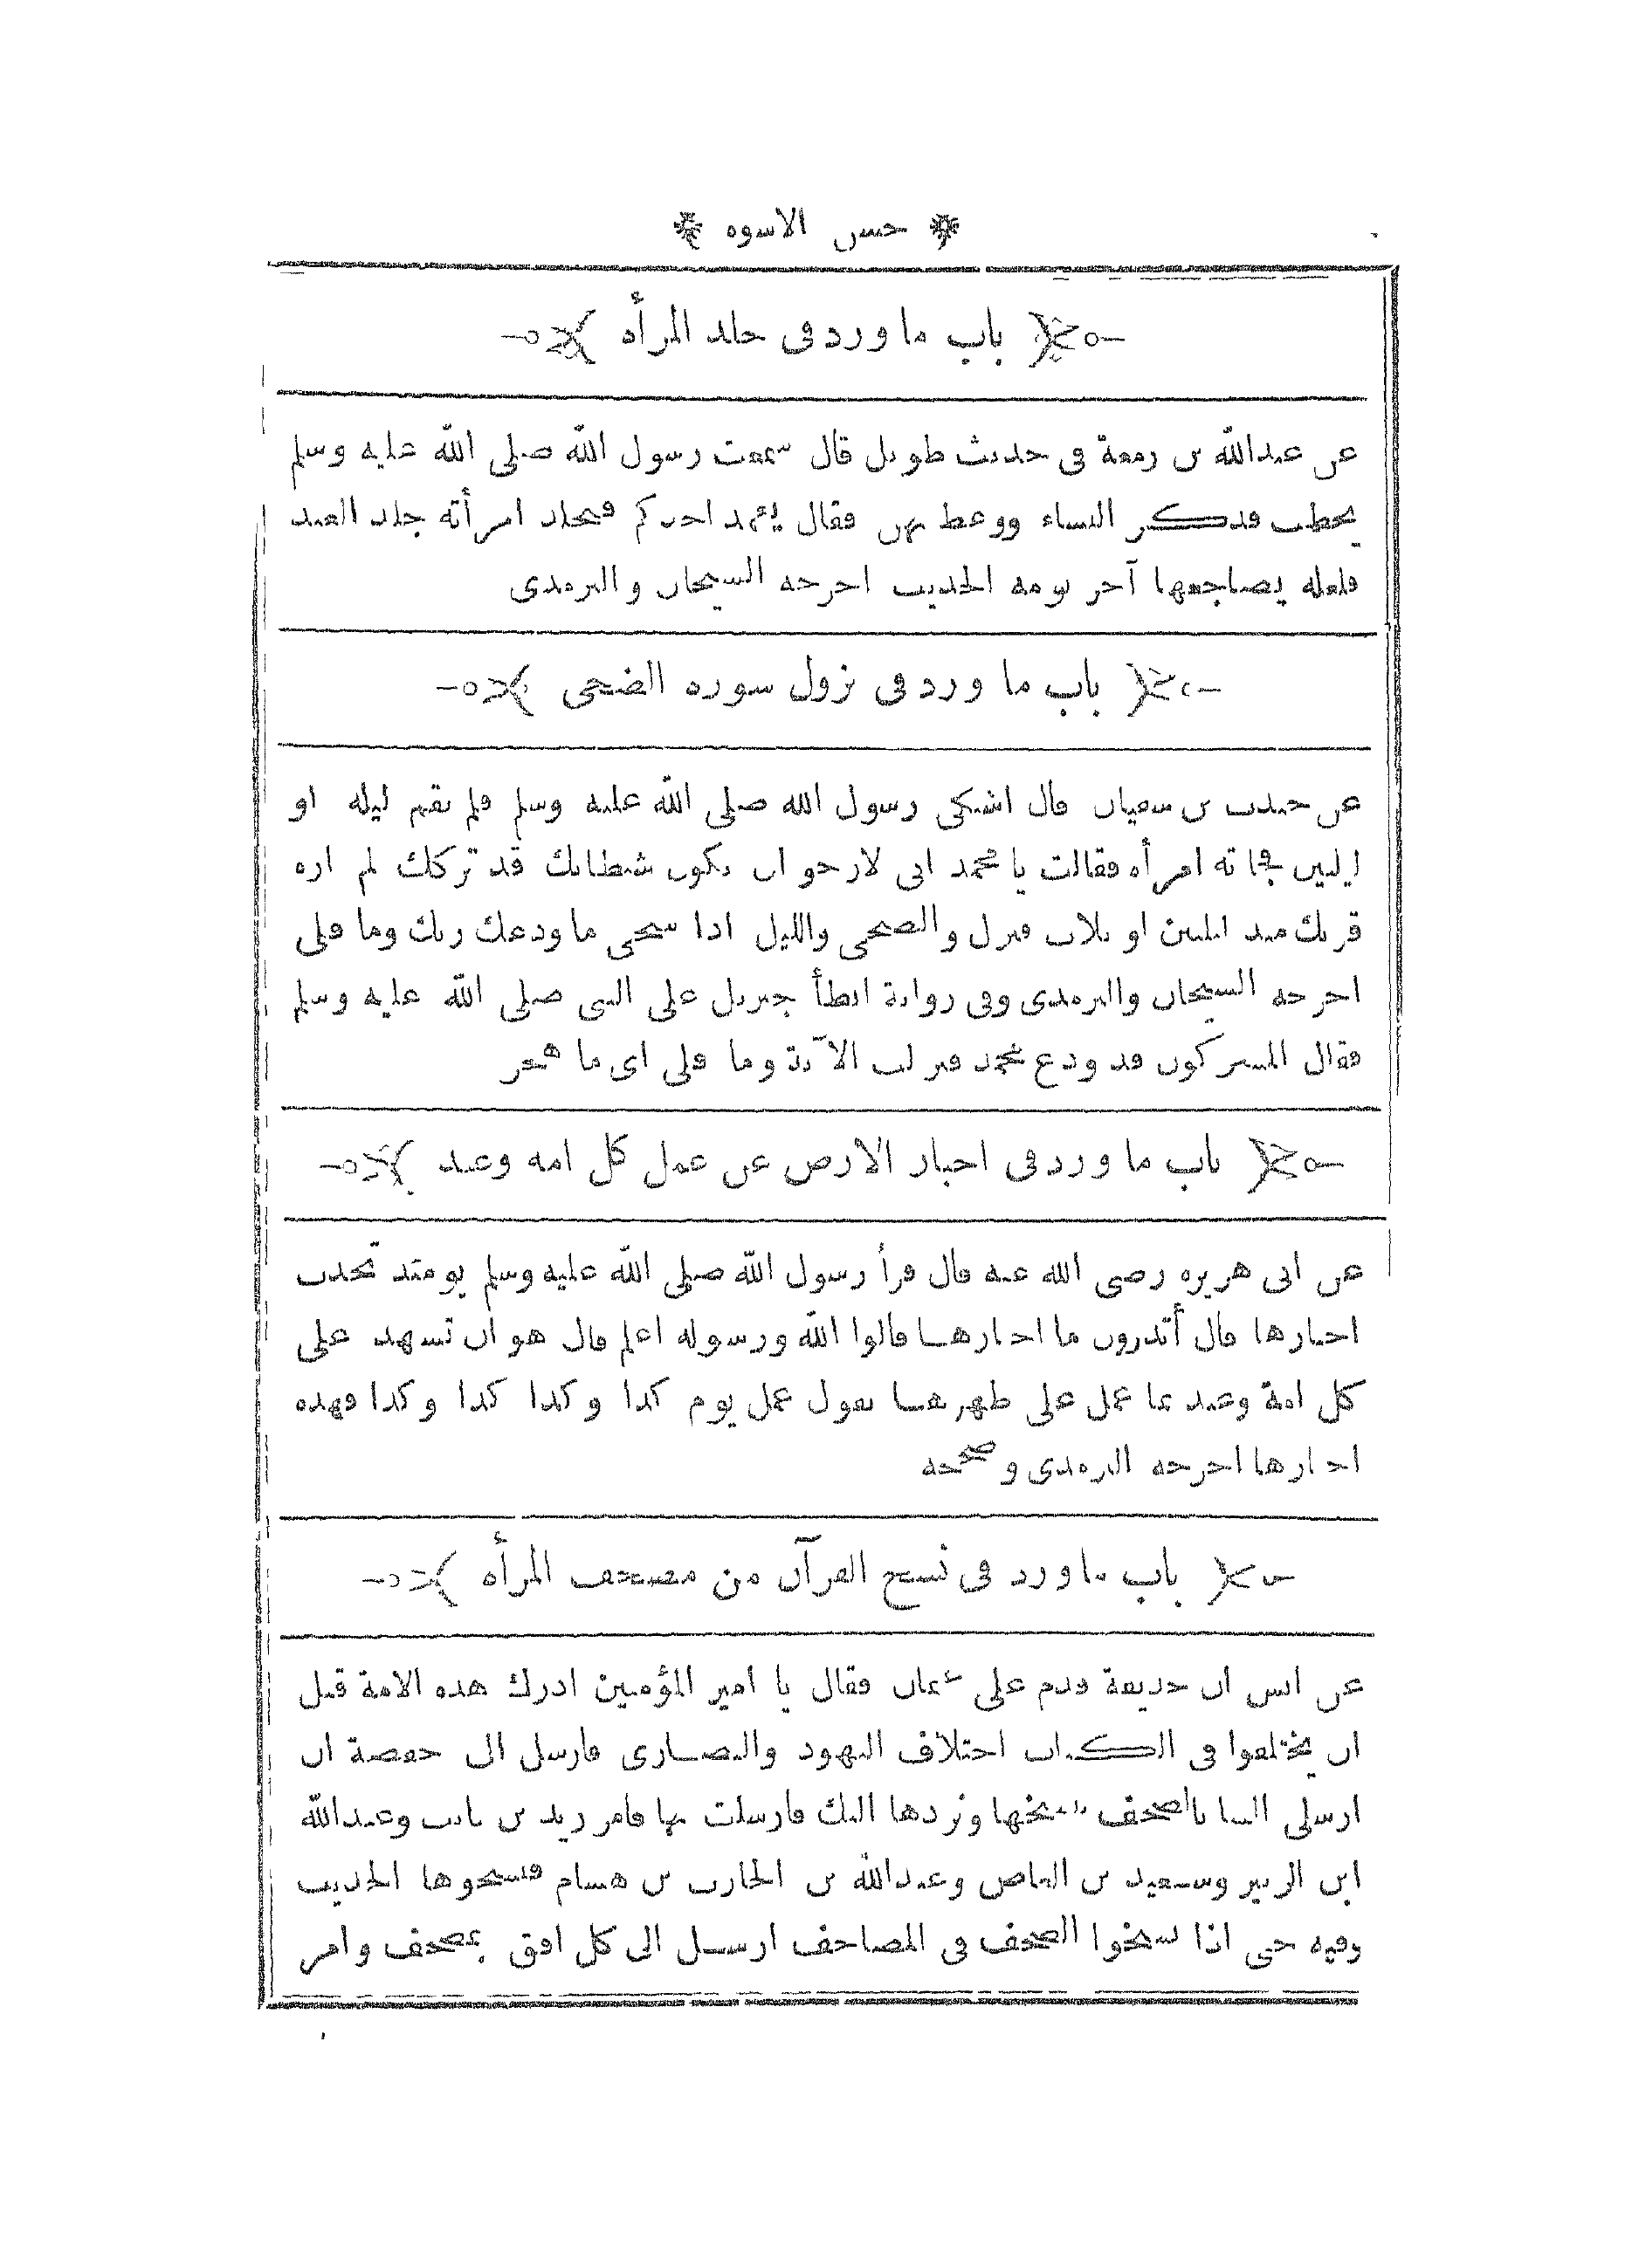 حسن الاسوة
باب ما ورد في جلد المرأة
عن عبدالله بن زمعة في حديث طويل قال سمعت رسول الله صلى الله عليه وسلم
يخطب فذكر النساء ووعظ بهن فقال يعمد احدكم فيجلد امرأته جلد العبد
فلعله يضاجعها آخر يومه الحديث اخرجه الشيخان والترمذى
باب ما ورد في نزول سورة الضحى
عن جندب بن سفيان قال اشتكى رسول الله صلى الله عليه وسلم فلم يقم ليلة او
ليلتين فجاءته امرأة فقالت يا محمد انى لارجو ان يكون شيطانك قد تركك لم اره
قربك منذ ليلتين او ثلاث فنزل والضحى والليل اذا سجى ما ودعك ربك وما قلى
اخرجه الشيخان والترمذى وفى رواية ابطأ جبريل على النبى صلى الله عليه وسلم
فقال المشركون قد ودع محمد فنزلت الآية وما قلى اى ما هجر
باب ما ورد في اخبار الارض عن عمل كل امة وعبد
عن ابى هريرة رضى الله عنه قال قرأ رسول الله صلى الله عليه وسلم يومئذ تحدث
اخبارها قال أتدرون ما اخبارها قالوا الله ورسوله اعلم قال هو ان تشهد على
كل امة وعبد بما عمل على ظهرها تقول عمل يوم كذا وكذا كذا وكذا فهذه
اخبارها اخرجه الترمذى وصححه
باب ما ورد في نسخ القرآن من مصحف المرأة
عن انس ان حذيفة قدم على عثمان فقال يا امير المؤمنين ادرك هذه الامة قبل
ان يختلفوا في الكتاب اختلاف اليهود والنصارى فارسل الى حفصة ان
ارسلى الينا بالصحف ننسخها ونردها اليك فارسلت بها فامر زيد بن ثابت وعبدالله
ابن الزبير وسعيد بن العاص وعبدالله بن الحارث بن هشام فنسخوها الحديث
وفيه حتى اذا نسخوا الصحف في المصاحف ارسل الى كل افق بمصحف وامر